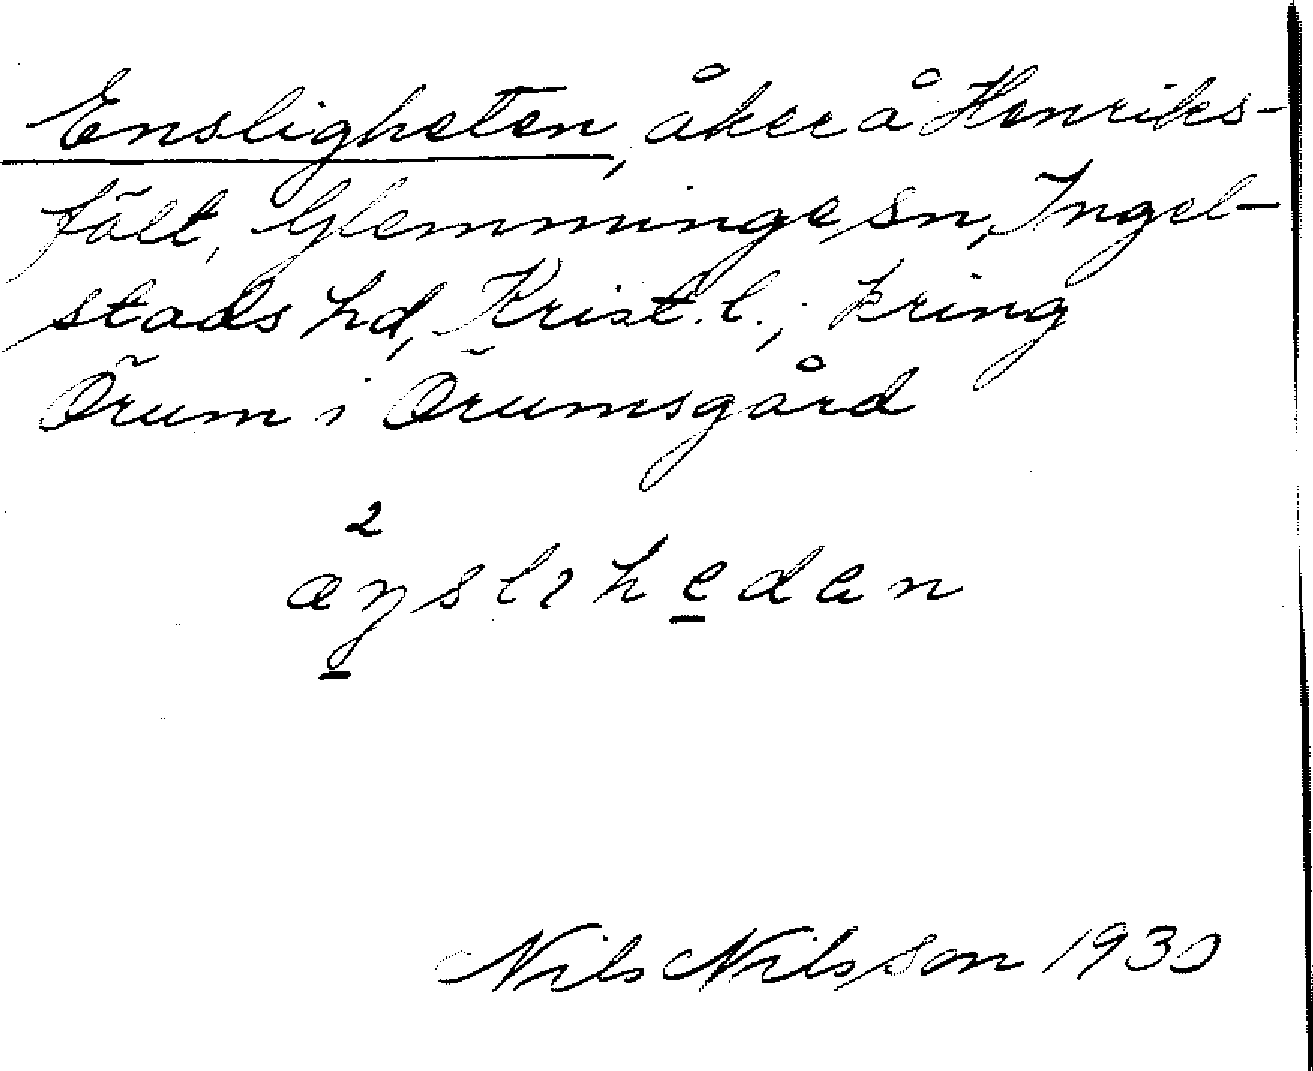 Ensligheten, åker å Henriks-
fält, Glemminge sn, Ingel-
stads hd, Krist. l.; kring
Örum i Örumsgård
2
æŋslıheden
Nils Nilsson 1930